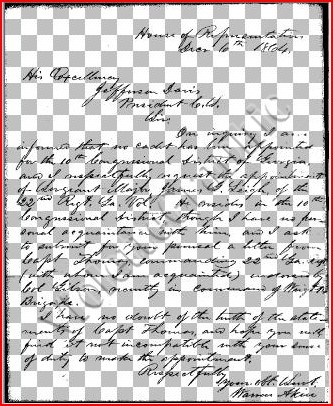 House of Representatives
Decr 6th 1864.
His Excellency
Jefferson Davis
President C.S.
Sir
On inquiry I am
informed that no cadet has been appointed
for the 10th Congressional District of Georgia
and I respectfully request the appointment
of Sergeant Major James L. Leigh, of the
22nd Regt. Ga. Vol. He resides in the 10th
Congressional District. Though I have no per-
sonal acquaintance with him, and I ask
to submit for your perusal a letter from
Capt Thomas, commanding 22nd Ga. regt
(with whom I am acquainted) endorsed by
Col. recently in command of Wright's
Brigade.
I have no doubt of the truth of the state-
ments of Capt Thomas, and hope you will
find it not incompatible with your sense
of duty to make the appointment.
Respectfully
Your Obt. Servt,
Warren Akin